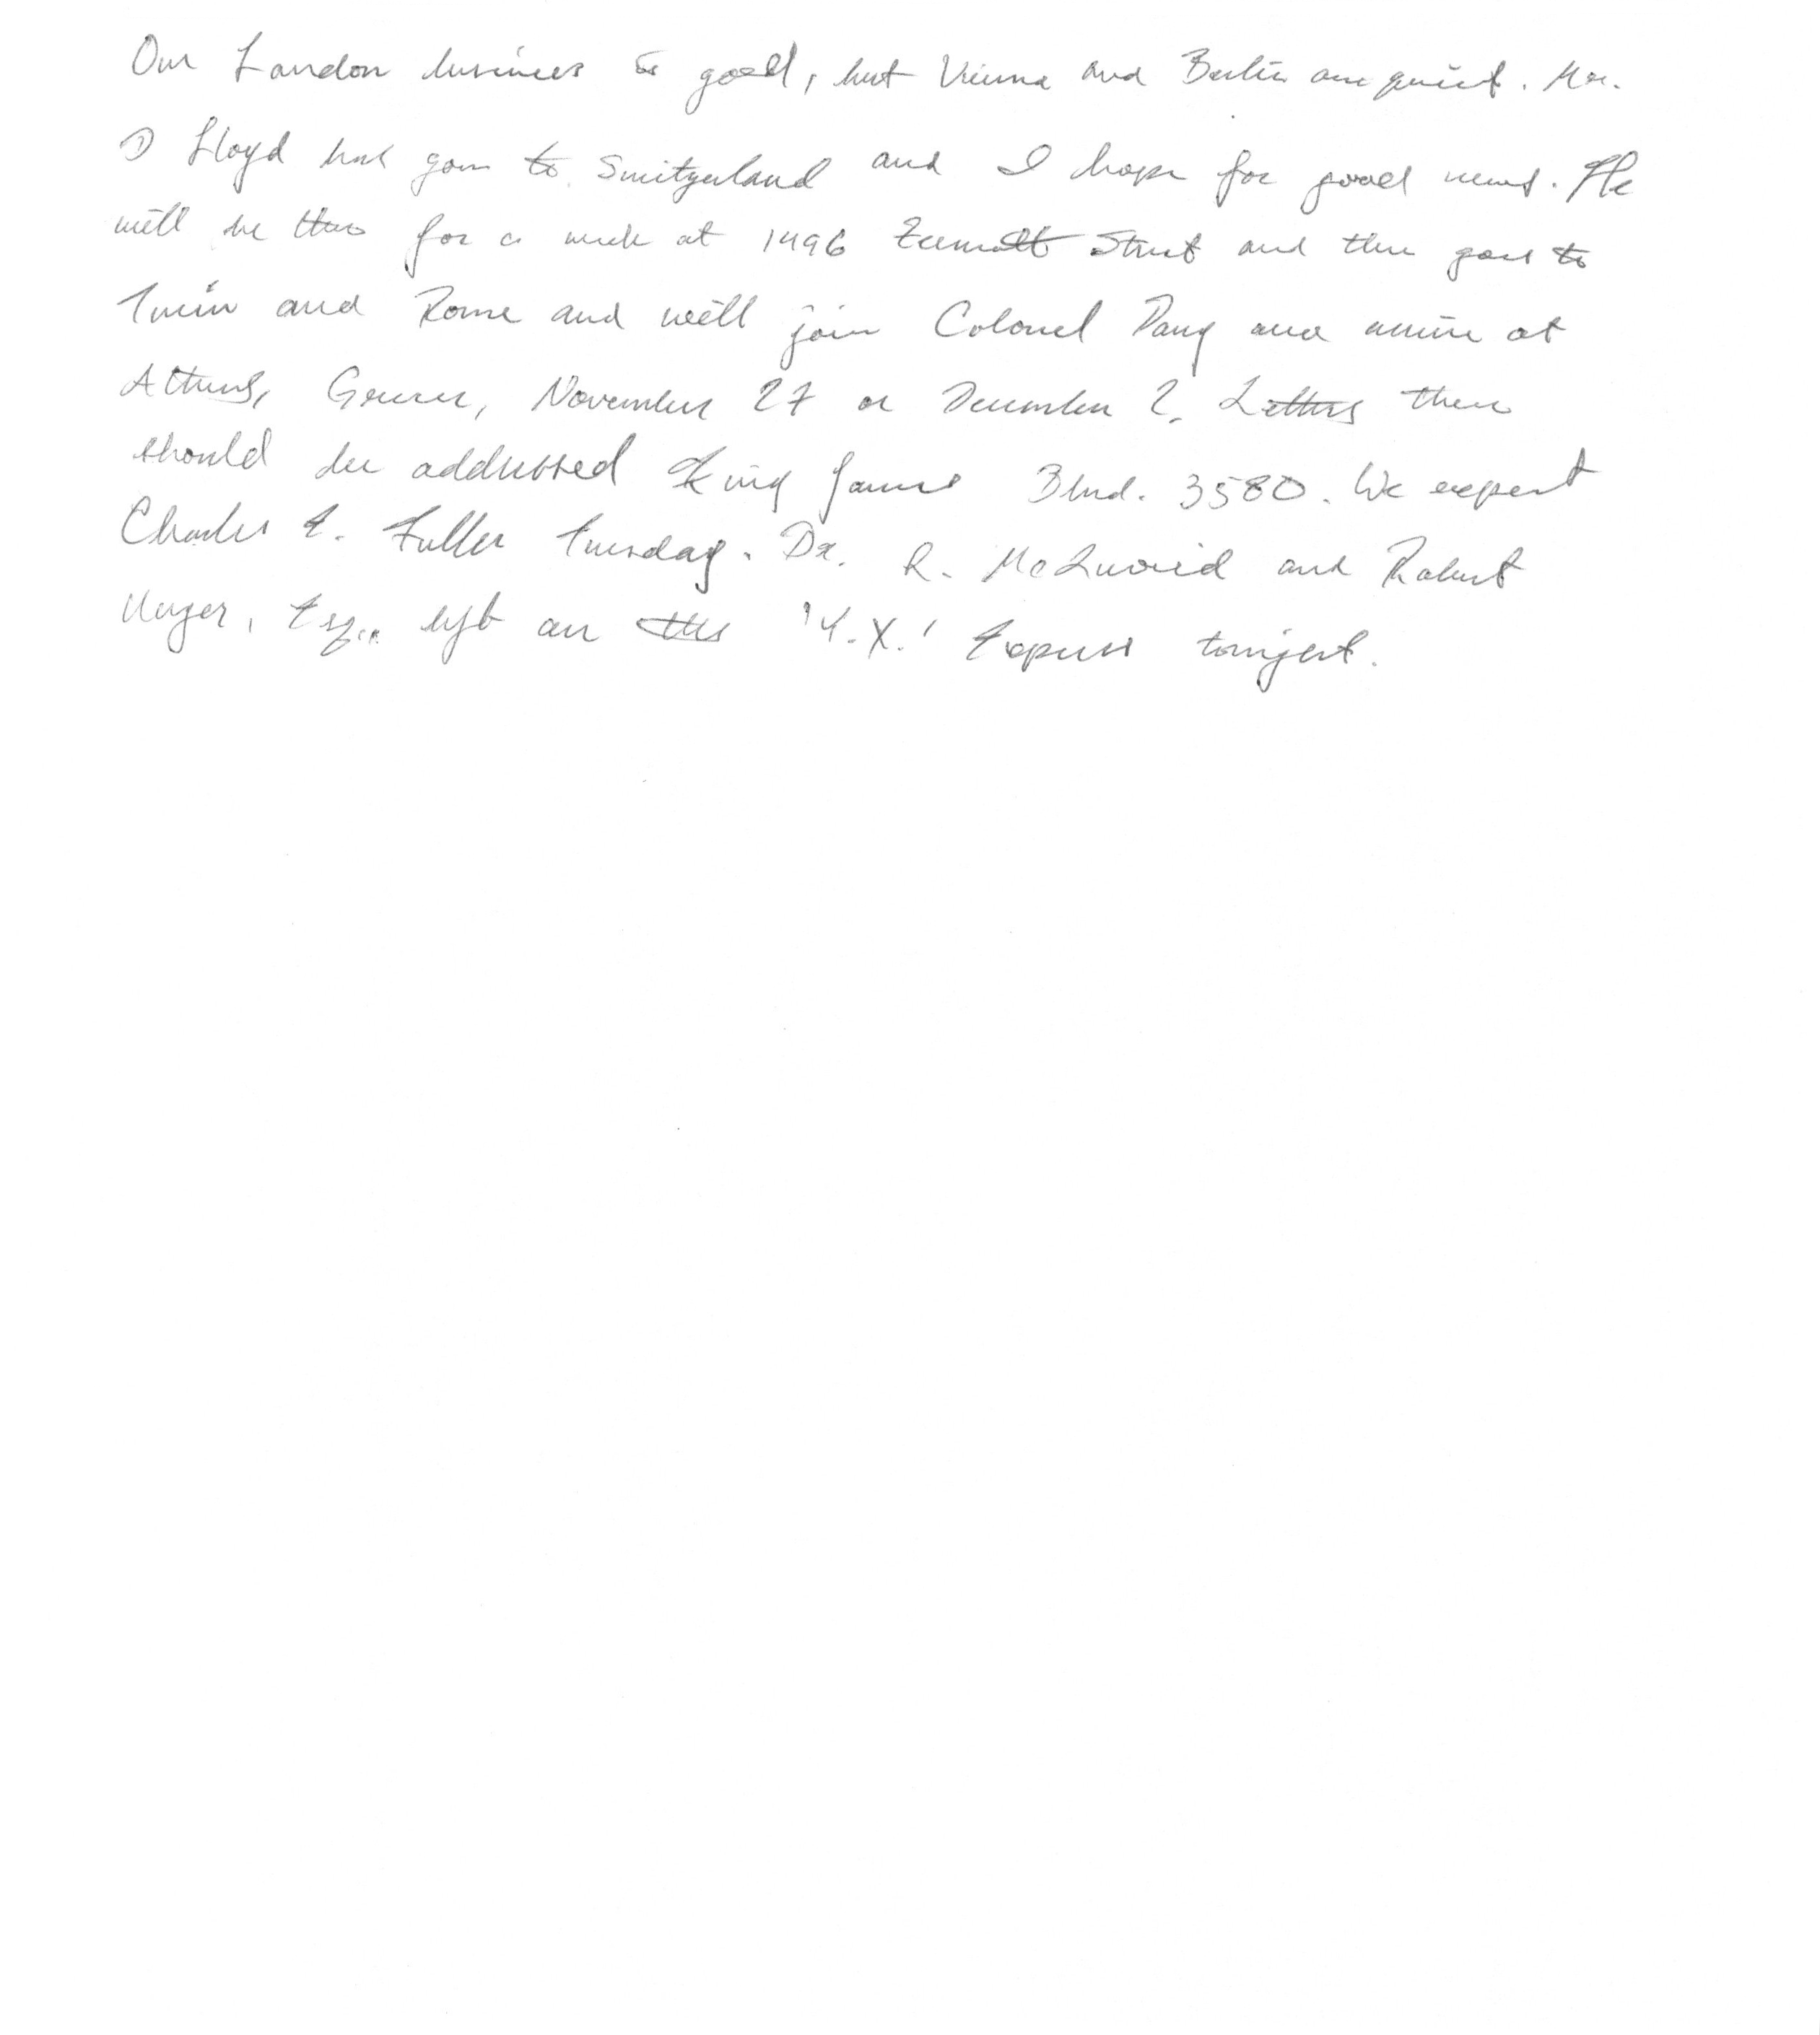 Our London business is good, but Vienna and Berlin are quiet. Mr.
D Lloyd has gone to Switzerland and I hope for good news. He
will be there for a week at 1496 Zermatt Street and then goes to
Turin and Rome and will join Colonel Parry and arrive at
Athens, Greece, November 27 or December 2. Letters there
should be addressed King James Blvd. 3580. We expect
Charles E. Fuller Tuesday. Dr. L. McQuaid and Robert
Unger, Esq., left on the 'Y.X.' Express tonight.